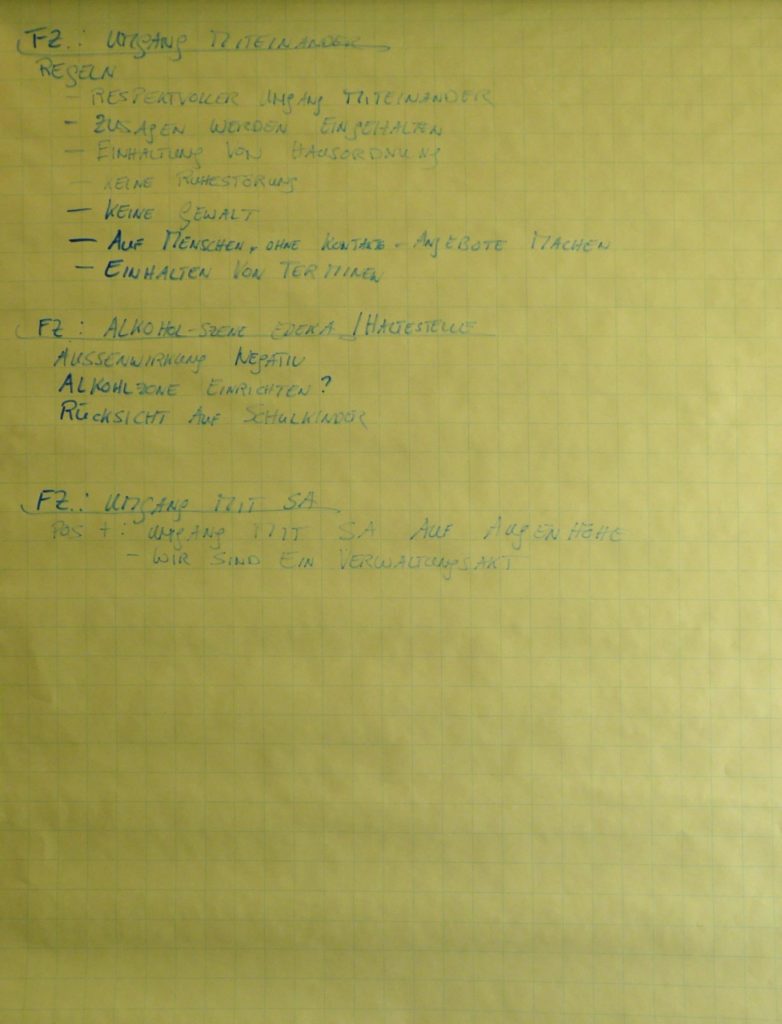 FZ.: UMGANG MITEINANDER
REGELN
- RESPEKTVOLLER UMGANG MITEINANDER
- ZUSAGEN WERDEN EINGEHALTEN
- EINHALTUNG VON HAUSORDNUNG
- KEINE RUHESTÖRUNG
- KEINE GEWALT
- AUF MENSCHEN, OHNE KONTAKTE - ANGEBOTE MACHEN
- EINHALTEN VON TERMINEN
FZ: ALKOHOL-SZENE EDEKA / HALTESTELLE
AUSSENWIRKUNG NEGATIV
ALKOHLZONE EINRICHTEN?
RÜCKSICHT AUF SCHULKINDER
FZ.: UMGANG MIT SA
POS +: UMGANG MIT SA AUF AUGENHÖHE
- WIR SIND EIN VERWALTUNGSAKT